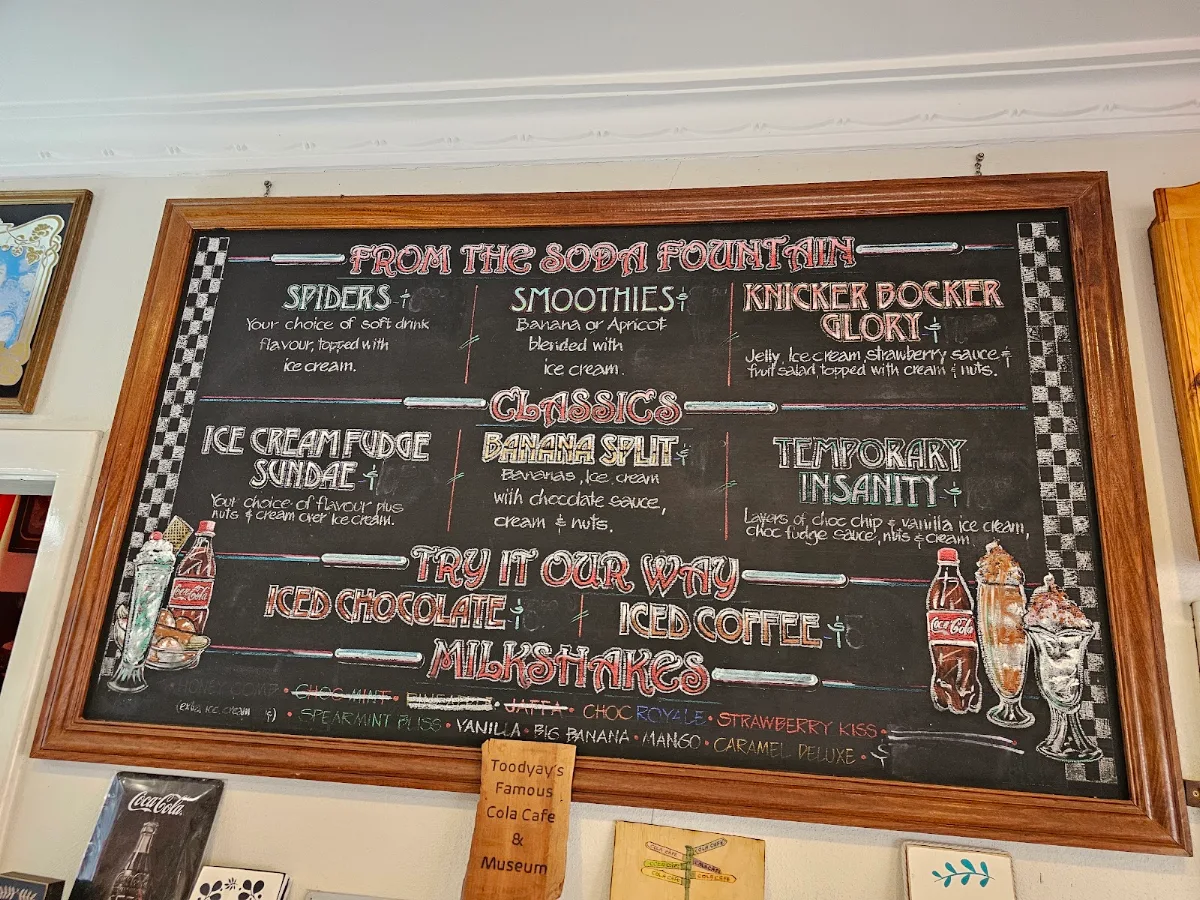 FROM THE SODA FOUNTAIN
SPIDERS
Your choice of soft drink
flavour, topped with
ice cream.
SMOOTHIES
Banana or Apricot
blended with
ice cream.
KNICKER BOCKER
GLORY
Jelly, Ice cream, strawberry sauce &
fruit salad topped with cream & nuts.
CLASSICS
ICE CREAM FUDGE
SUNDAE
Your choice of flavour plus
nuts & cream over ice cream.
BANANA SPLIT
Bananas, Ice cream
with chocolate sauce,
cream & nuts.
TEMPORARY
INSANITY
Layers of choc chip & vanilla ice cream,
choc fudge sauce, nuts & cream
TRY IT OUR WAY
ICED CHOCOLATE
ICED COFFEE
MILKSHAKES
HONEY COMB • CHOC MINT • PINEAPPLE • JAFFA • CHOC ROYALE • STRAWBERRY KISS •
(extra ice cream )
• SPEARMINT BLISS • VANILLA • BIG BANANA • MANGO • CARAMEL DELUXE •
Coca-Cola
Coca-Cola
Coca-Cola
Toodyay's
Famous
Cola Cafe
&
Museum
COLA CAFE